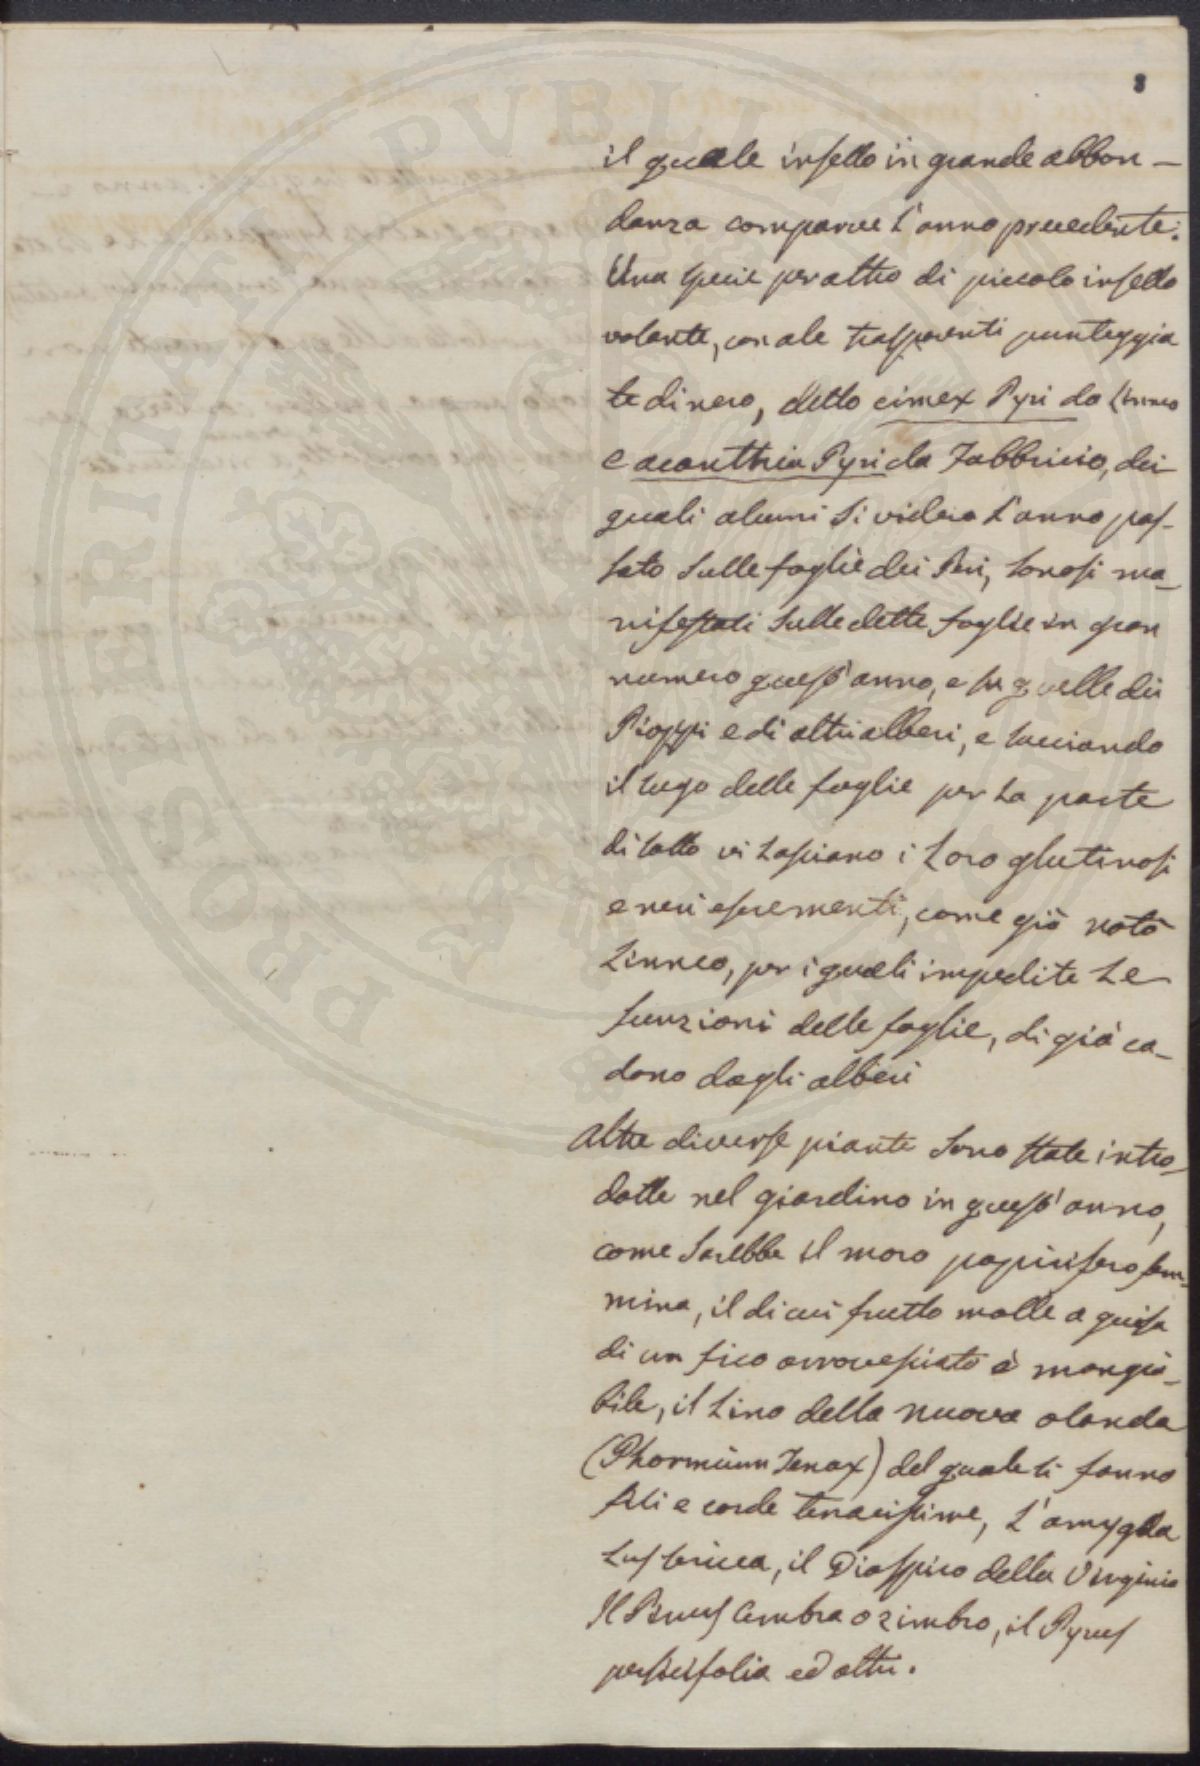 8
il quale insetto in grande abbon-
danza comparve l'anno precedente.
Una specie per altro di piccolo insetto
volante, con ale trasparenti punteggia
te di nero, detto cimex Pyri da Linneo
e acanthia Pyri da Fabbricio, dei
quali alcuni si videro l'anno pas-
sato sulle foglie dei Peri, sonosi ma-
nifestati sulle dette foglie in gran
numero quest'anno, e su quelle dei
Pioppi e di altri alberi, e succiando
il sugo delle foglie per la parte
di sotto vi lasciano i loro glutinosi
e neri escrementi, come già notò
Linneo, per i quali impedite le
funzioni delle foglie, di già ca-
dono dagli alberi
Altre diverse piante sono state intro-
dotte nel giardino in quest'anno,
come sarebbe il moro papirifero fem-
mina, il di cui frutto molle a guisa
di un fico arrovesciato è mangia-
bile, il Lino della nuova olanda
(Phormium Tenax) del quale si fanno
fili e corde tenacissime, l'amygda
il Diospiro della Virginia
Il Pinus Cembra o zimbro, il Pyrus
persicifolia ed altri.
PROSPERITATI PUBLICAE